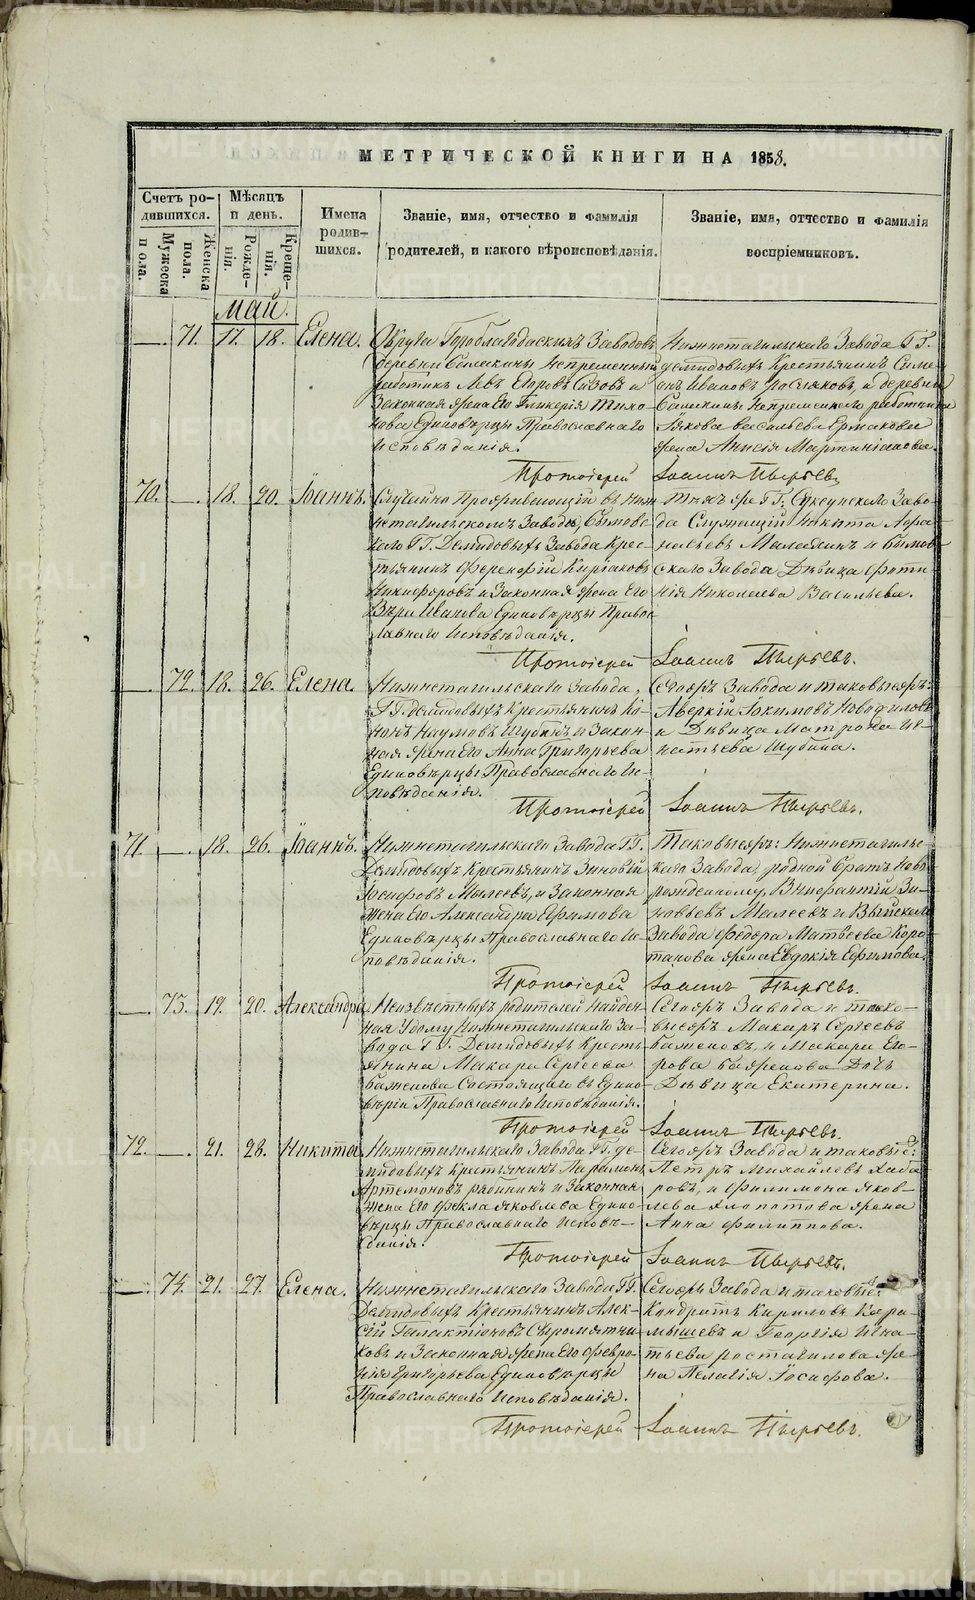 МЕТРИЧЕСКОЙ КНИГИ НА 1858.
Счетъ ро-
дившихся.
Мужеска
пола.
Женска
пола.
Мѣсяцъ
и день.
Рожде-
нія.
Креще-
нія.
Имена
родив-
шихся.
Званіе, имя, отчество и фамилія
родителей, и какого вѣроисповѣданія.
Званіе, имя, отчество и фамилія
воспріемниковъ.
Май.
—. 71. 17. 18. Елена.
Округа Гороблагодаскихъ Заводовъ
деревни Балакины Непременный
работникъ Левъ Егоровъ Сизовъ и
Законная жена Его Гликерія Тихо
нова Единовѣрцы Православнаго
исповѣданія.
Нижнетагильскаго Завода ГГ.
Демидовыхъ Крестьянинъ Симе
онъ Ивановъ Посляковъ, и деревни
Балакины Непременнаго работника
Якова Васильева Ермакова
жена Анисія Мартиніанова.
Протоіерей Іоаннъ Пырьевъ
70. —. 18. 20. Іоаннъ.
Случайно Проживающій въ Ниж
нетагильскомъ Заводѣ, Сылвен
скаго ГГ. Демидовыхъ Завода Крес-
тьянинъ Ферепофій Киріаковъ
Никифоровъ и Законная жена Его
Вѣра Иванова Единовѣрцы Право
славнаго Исповѣданія.
Тѣхъ же ГГ. Суксунскаго Заво-
да Служащій Никита Афа
насьевъ Малахинъ и
скаго Завода Дѣвица Фоти
нія Николаева Васильева.
Протоіерей Іоаннъ Пырьевъ.
—. 72. 18. 26. Елена.
Нижнетагильскаго Завода,
ГГ. Демидовыхъ Крестьянинъ Ко-
нонъ Наумовъ Шубинъ и Закон-
ная жена Его Анна Григорьева
Единовѣрцы Православнаго Ис-
повѣданія.
Сегожъ Завода и таковыежъ:
Аверкій Іокимовъ Новофиловъ
и Дѣвица Матрона Иг-
натьева Шубина.
Протоіерей Іоаннъ Пырьевъ.
71. —. 18. 26. Іоаннъ.
Нижнетагильскаго Завода ГГ.
Демидовыхъ Крестьянинъ Зиновій
Іосифовъ Малеевъ, и Законная
жена Его Александра Ефимова
Единовѣрцы Православнаго Ис-
повѣданія.
Таковыежъ: Нижнетагильс-
каго Завода, родной братъ Ново
рожденному, Внифантій Зи-
новьевъ Малеевъ и Выйскаго
Завода Федора Матвеева Коро
танова жена Евдокія Ефимова.
Протоіерей Іоаннъ Пырьевъ.
—. 73. 19. 20. Александра
Неизвѣстныхъ родителей Найден
ная У дому Нижнетагильскаго За-
вода ГГ. Демидовыхъ Кресть
янина Макара Сергеева
Баженова Состоящаго въ Едино
вѣріи Православнаго Исповѣданія.
Сегожъ Завода и тако-
выежъ Макаръ Сергеевъ
Баженовъ, и Макара Его-
рова Баженова Дочь
Дѣвица Екатерина.
Протоіерей Іоаннъ Пырьевъ.
72. —. 21. 28. Никита
Нижнетагильскаго Завода ГГ. Де-
мидовыхъ Крестьянинъ Парамонъ
Артемоновъ Рябининъ и Законная
жена Его Фекла Яковлева Едино
вѣрцы Православнаго Исповѣ-
данія.
Сегожъ Завода и таковые:
Петръ Михайловъ Хаба
ровъ, и Филимона Яков-
лева Хлопотова жена
Анна Филиппова.
Протоіерей Іоаннъ Пырьевъ.
—. 74. 21. 27. Елена.
Нижнетагильскаго Завода ГГ.
Демидовыхъ Крестьянинъ Алек-
сій Галактіоновъ Сыромятни
ковъ и Законная жена Его Февро-
нія Григорьева Единовѣрцы
Православнаго Исповѣданія.
Сегожъ Завода и таковые:
Кондратъ Кириловъ Кара
мышевъ и Георгія Игна
тьева Ростагилова же
на Пелагія Іосифова.
Протоіерей Іоаннъ Пырьевъ.